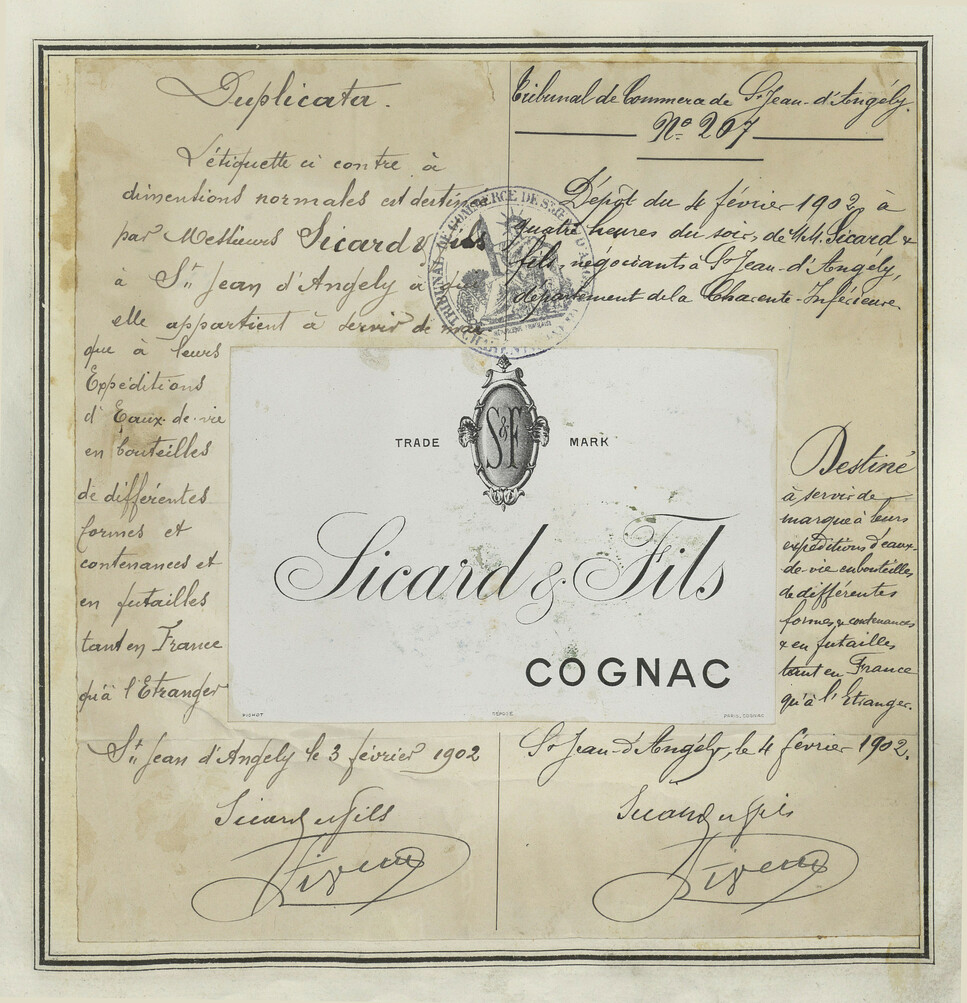 Duplicata.
L'étiquette ci contre à
dimentions normales est destinée
par Messieurs Sicard & fils
à St Jean d'Angely à
elle appartient à servir de mar-
que à leurs
Expéditions
d'Eaux-de-vie
en bouteilles
de différentes
formes et
contenances et
en futailles
tant en France
qu'à l'Etranger
St Jean d'Angely le 3 février 1902
Sicard et fils
Tribunal de Commerce de St Jean-d'Angély.
No 207
Dépôt du 4 février 1902, à
quatre heures du soir, de MM. Sicard &
fils, négociants à St Jean-d'Angély,
département de la Charente-Inférieure
TRIBUNAL DE COMMERCE DE ST JEAN D'ANGELY
RÉPUBLIQUE FRANÇAISE
S&F
TRADE MARK
Sicard & Fils
COGNAC
PICHOT
DÉPOSÉ
PARIS, COGNAC
Destiné
à servir de
marque à leurs
expéditions d'eaux-
de-vie en bouteilles
de différentes
formes & contenances
& en futailles
tant en France
qu'à l'Etranger.
St Jean-d'Angély, le 4 février 1902.
Sicard et fils